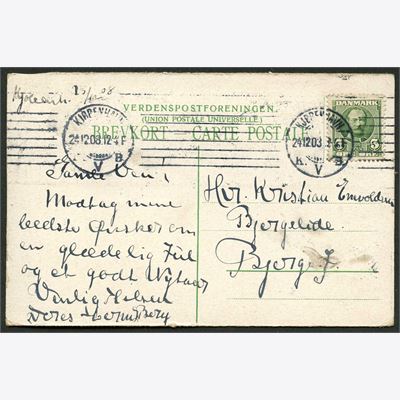 VERDENSPOSTFORENINGEN.
(UNION POSTALE UNIVERSELLE)
BREVKORT - CARTE POSTALE
KJØBENHAVN
24.12.08.12-1F
V B
KJØBENHAVN
24.12.08.
K V B
DANMARK
5 5
ØRE
Gamle Ven!
Modtag mine
bedste Ønsker om
en glædelig Jul
og et godt Nytaar
Venlig Hilsen
Deres
Hr. Kristian
Bjergelide